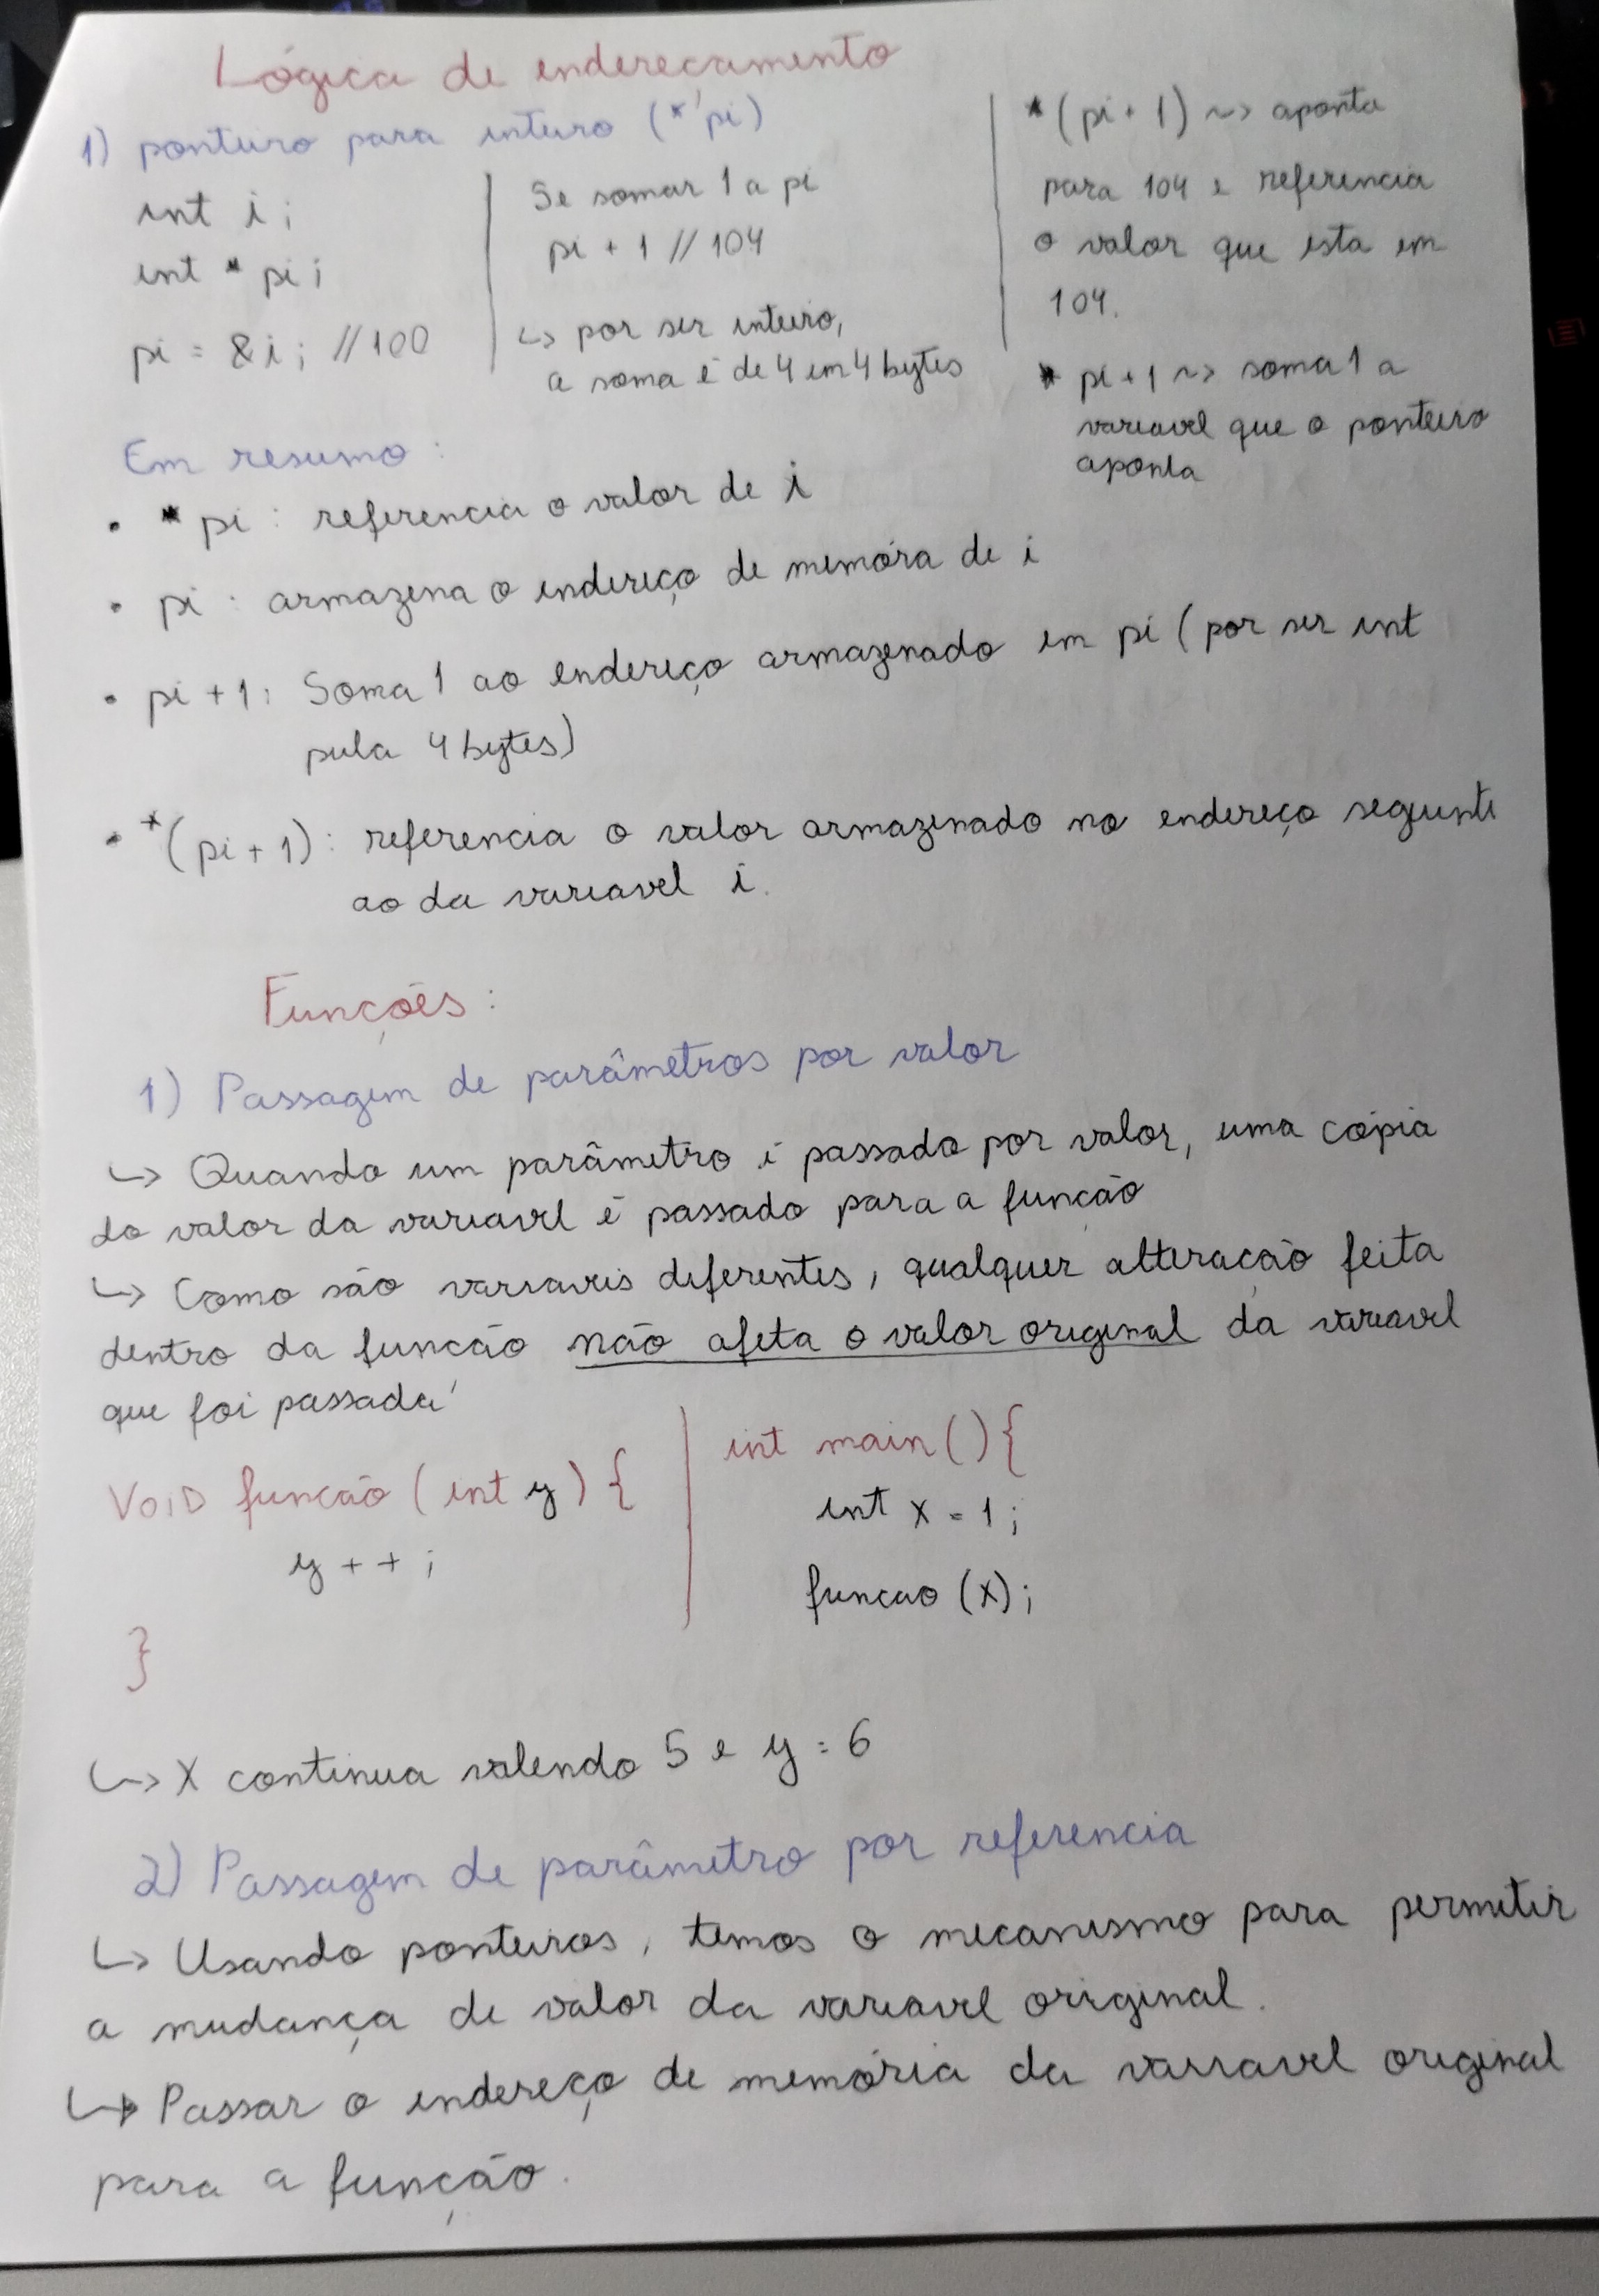 Lógica de endereçamento
1) ponteiro para inteiro (*pi)
int i;
int * pi;
pi = &i; //100
Se somar 1 a pi
pi + 1 // 104
↳ por ser inteiro,
a soma é de 4 em 4 bytes
*(pi + 1) ~> aponta
para 104 e referencia
o valor que esta em
104.
* pi + 1 ~> soma 1 a
variavel que o ponteiro
aponta
Em resumo:
• * pi : referencia o valor de i
• pi : armazena o endereço de memóra de i
• pi + 1: Soma 1 ao endereço armazenado em pi (por ser int
pula 4 bytes)
• *(pi + 1): referencia o valor armazenado no endereço seguinte
ao da variavel i.
Funções:
1) Passagem de parâmetros por valor
↳ Quando um parâmetro é passado por valor, uma cópia
do valor da variavel é passado para a função
↳ Como são variaveis diferentes, qualquer alteração feita
dentro da função não afeta o valor original da variavel
que foi passada
VoiD funcão (int y) {
y + + ;
}
int main () {
int x = 1 ;
funcao (x);
↳ X continua valendo 5 e y = 6
2) Passagem de parâmetro por referencia
↳ Usando ponteiros, temos o mecanismo para permitir
a mudança de valor da variavel original.
↳ Passar o endereço de memória da variavel original
para a função.